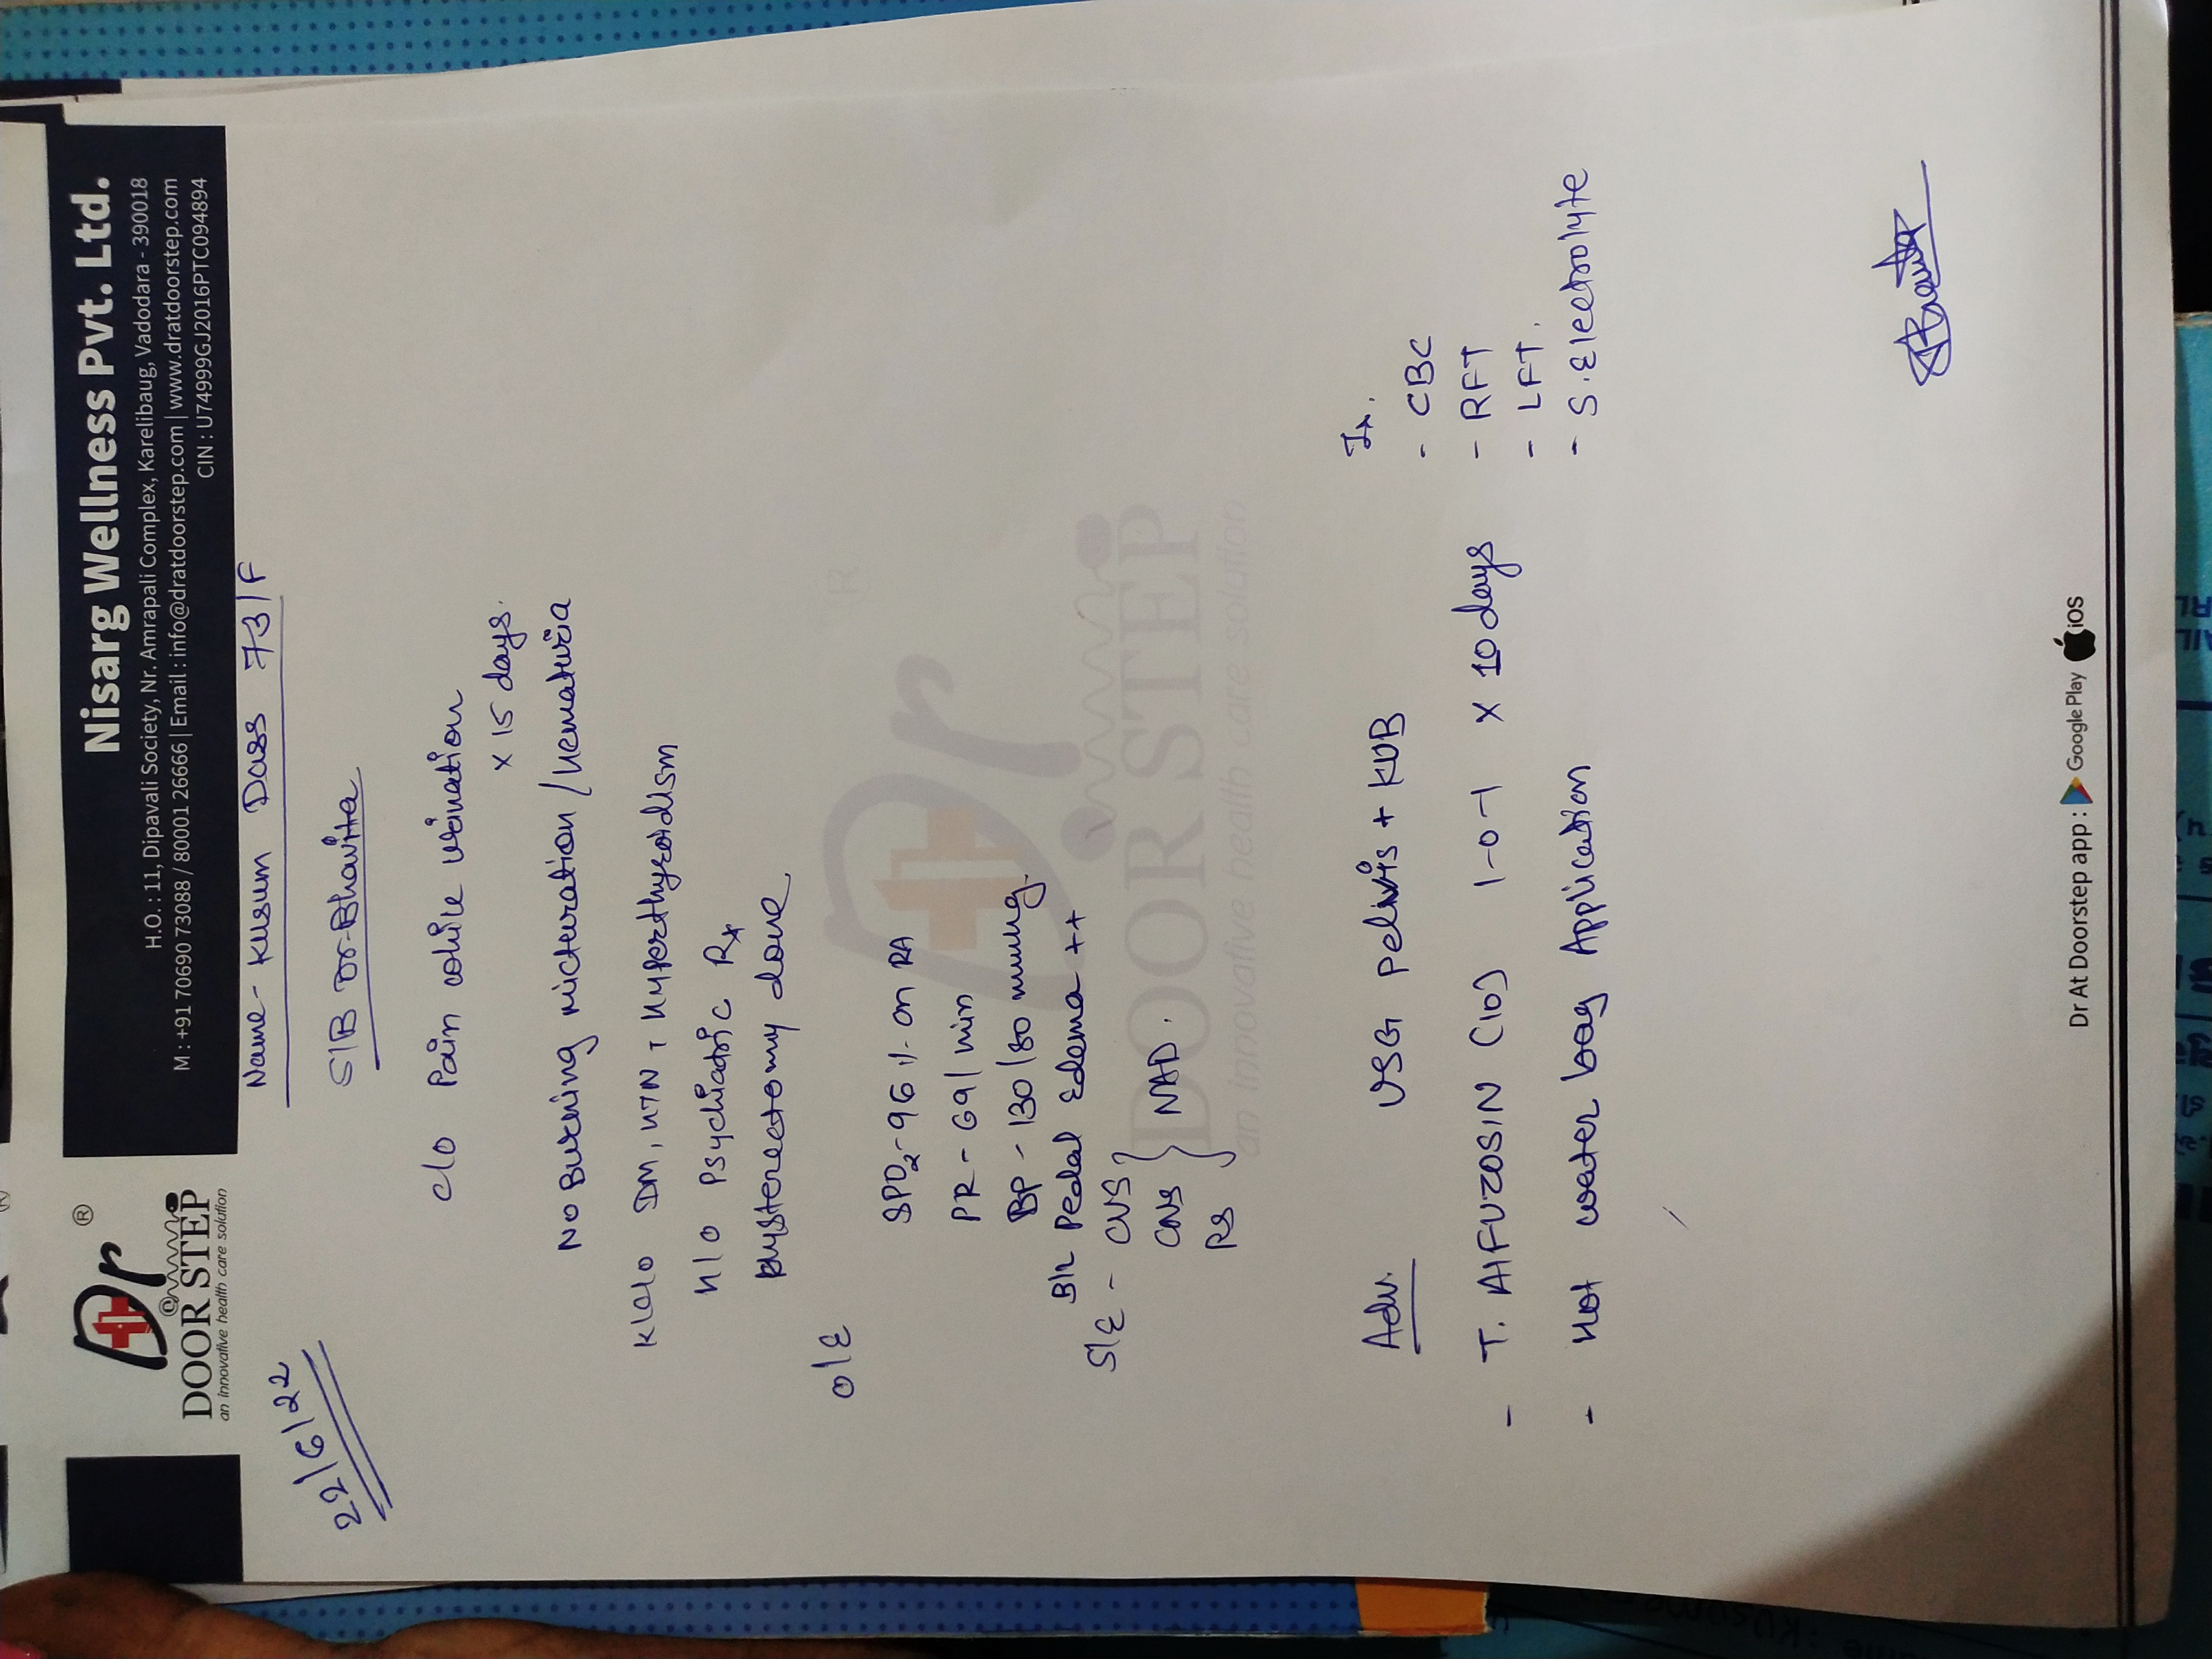 Dr ®
@
DOOR STEP
an innovative health care solution
Nisarg Wellness Pvt. Ltd.
H.O. : 11, Dipavali Society, Nr. Amrapali Complex, Karelibaug, Vadodara - 390018
M : +91 70690 73088 / 80001 26666 | Email : info@dratdoorstep.com | www.dratdoorstep.com
CIN : U74999GJ2016PTC094894
Name - Kusum Dass 73/F
22/6/22
S/B Dr. Bhavita
c/o Pain while urination
x 15 days.
No Burning micturation / Hematuria
K/c/o DM, HTN, Hyperthyroidism
H/o Psychiatric Rx
Hysterectomy done
O/E
SPO2 - 96 % on RA
PR - 69/min
BP - 130/80 mmHg
B/L Pedal Edema ++
S/E - CVS
CNS } NAD.
RS
Dr ®
DOOR STEP
an innovative health care solution
Adv. USG pelivis + KUB
- T. AlFUZOSIN (10) 1-0-1 x 10 days
- Hot water bag Application
Ix.
- CBC
- RFT
- LFT.
- S. Electrolyte
Dr At Doorstep app : Google Play iOS